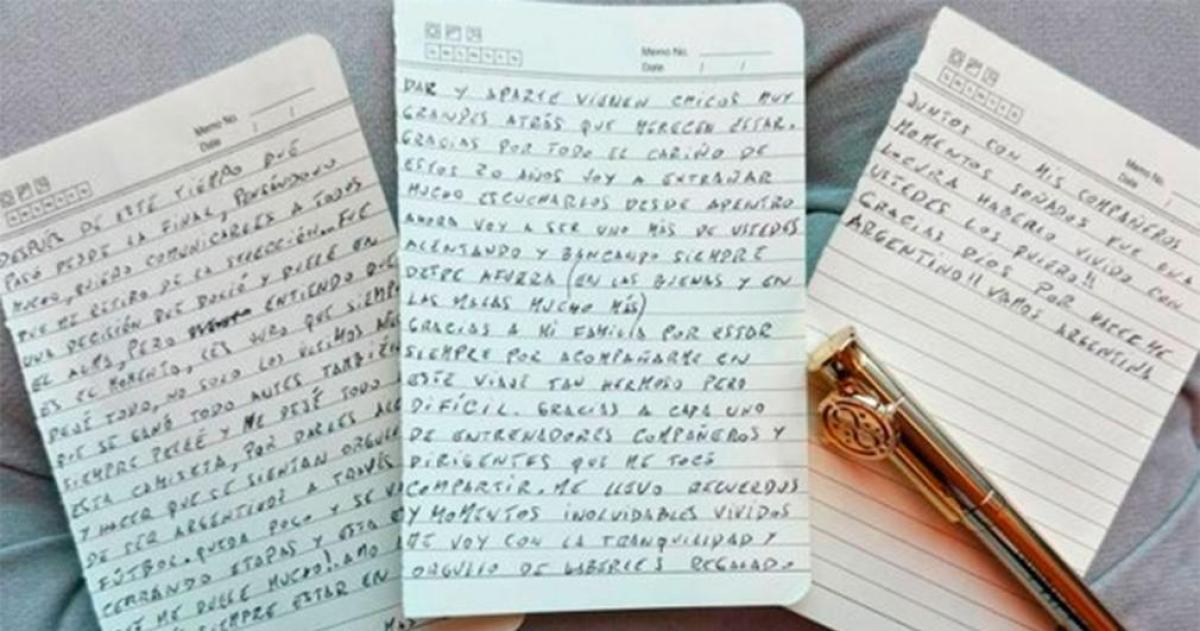 Memo No.
Date / /
DESPUÉS DE ESTE TIEMPO QUE
PASÓ DESDE LA FINAL, PENSÁNDOLO
MUCHO, QUIERO COMUNICARLES A TODOS
QUE MI RETIRO DE LA SELECCIÓN. FUE
UNA DECISIÓN QUE DOLIÓ Y DUELE EN
EL ALMA, PERO ENTIENDO QUE
ES EL MOMENTO, LES JURO QUE SIEMP
DEJÉ TODO, NO SOLO LOS ÚLTIMOS AÑO
QUE SE GANÓ TODO ANTES TAMBIÉN
SIEMPRE PELEÉ Y ME DEJÉ TODO
ESTA CAMISETA, POR DARLES ALE
Y HACER QUE SE SIENTAN ORGULL
DE SER ARGENTINOS A TRAVÉS
FÚTBOL. QUEDA POCO Y SE VA
CERRANDO ETAPAS Y ESTA E
ME DUELE MUCHO! AMO
SIEMPRE ESTAR EN
Memo No.
Date / /
DAR Y APARTE VIENEN CHICOS MUY
GRANDES ATRÁS QUE MERECEN ESTAR.
GRACIAS POR TODO EL CARIÑO DE
ESTOS 20 AÑOS VOY A EXTRAÑAR
MUCHO ESCUCHARLOS DESDE ADENTRO
AHORA VOY A SER UNO MÁS DE USTEDES
ALENTANDO Y BANCANDO SIEMPRE
DESDE AFUERA (EN LAS BUENAS Y EN
LAS MALAS MUCHO MÁS)
GRACIAS A MI FAMILIA POR ESTAR
SIEMPRE POR ACOMPAÑARME EN
ESTE VIAJE TAN HERMOSO PERO
DIFÍCIL. GRACIAS A CADA UNO
DE ENTRENADORES COMPAÑEROS Y
DIRIGENTES QUE ME TOCÓ
COMPARTIR. ME LLEVO RECUERDOS
Y MOMENTOS INOLVIDABLES VIVIDOS
ME VOY CON LA TRANQUILIDAD Y
ORGULLO DE HABERLES REGALADO
Memo No.
Date /
JUNTOS CON MIS COMPAÑEROS
MOMENTOS SOÑADOS FUE UNA
LOCURA HABERLO VIVIDO CON
USTEDES LOS QUIERO!!
GRACIAS DIOS POR HACERME
ARGENTINO!! VAMOS ARGENTINA